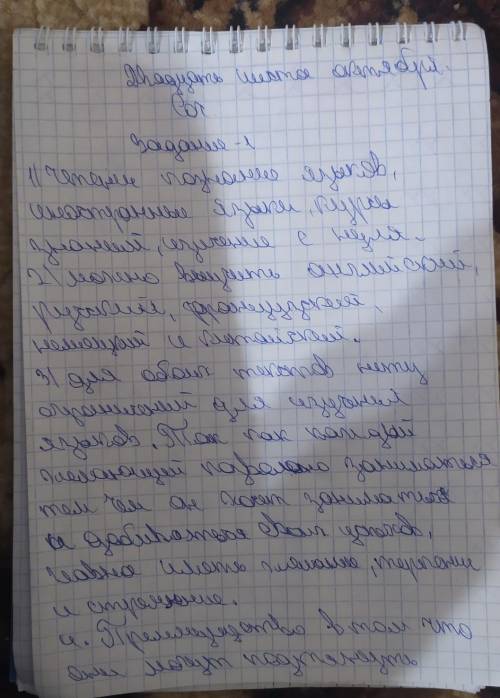 Двадцать шестое октября.
Соч
Задание-1
1) познание языков,
иностранные языки, курсы
знаний, изучение с
2) можно выучить английский,
русский, французский,
немецкий и китайский.
3) для обоих текстов нету
ограничений для изучения
языков. Так как каждой
желающий заниматься
тем чем он хочет заниматься
и добиваться своих успехов,
иметь желание, терпение
и стремление.
4. Преимущество в том что
они могут подтянуть